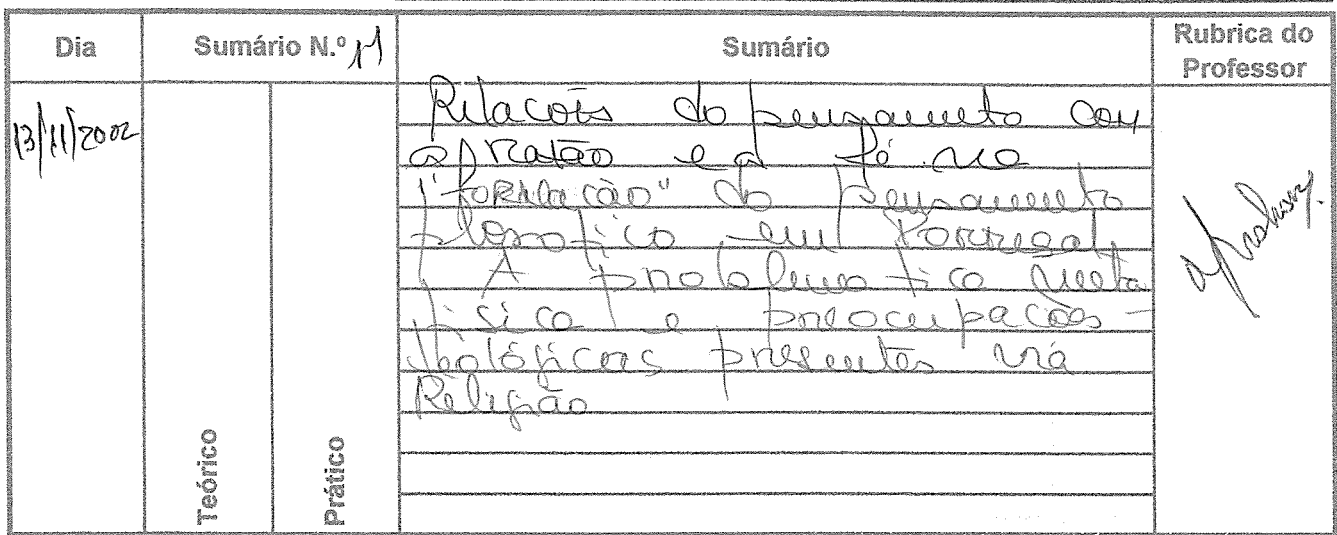 Dia
Sumário N.º 11
Sumário
Rubrica do
Professor
13/11/2002
Relações do pensamento com
a Razão e a fé na
"formação" do pensamento
filosófico em Portugal.
A problemática meta
física e preocupações -
teológicas presentes na
Religião
Teórico
Prático